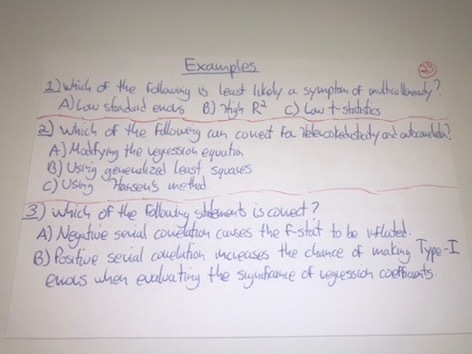 Examples
23
1) Which of the following is least likely a symptom of multicollinearity?
A) Low standard errors B) High R² C) Low t-statistics
2) Which of the following can correct for Heteroskedasticity and autocorrelation?
A) Modifying the regression equation
B) Using generalized least squares
C) Using Hansen's method.
3) Which of the following statements is correct?
A) Negative serial correlation causes the F-stat to be inflated.
B) Positive serial correlation increases the chance of making Type-I
errors when evaluating the significance of regression coefficients.